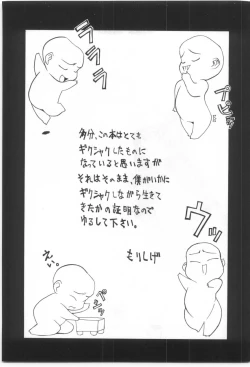 ラララ
プピッ
多分、この本はとても
ギクシャクしたものに
なっていると思いますが
それはそのまま、僕がいかに
ギクシャクしながら生きて
きたかの証明なので
ゆるして下さい。
もりしげ
ウッ
えい。
ペシッ